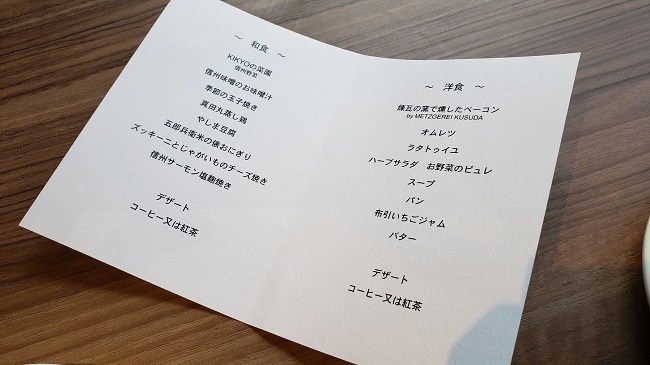 ～ 和食 ～
KIKYOの菜園
信州野菜
信州味噌のお味噌汁
季節の玉子焼き
真田丸蒸し鶏
やしま豆腐
五郎兵衛米の俵おにぎり
ズッキーニとじゃがいものチーズ焼き
信州サーモン塩麹焼き
デザート
コーヒー又は紅茶
～ 洋食 ～
煉瓦の窯で燻したベーコン
by METZGEREI KUSUDA
オムレツ
ラタトゥイユ
ハーブサラダ お野菜のピュレ
スープ
パン
布引いちごジャム
バター
デザート
コーヒー又は紅茶